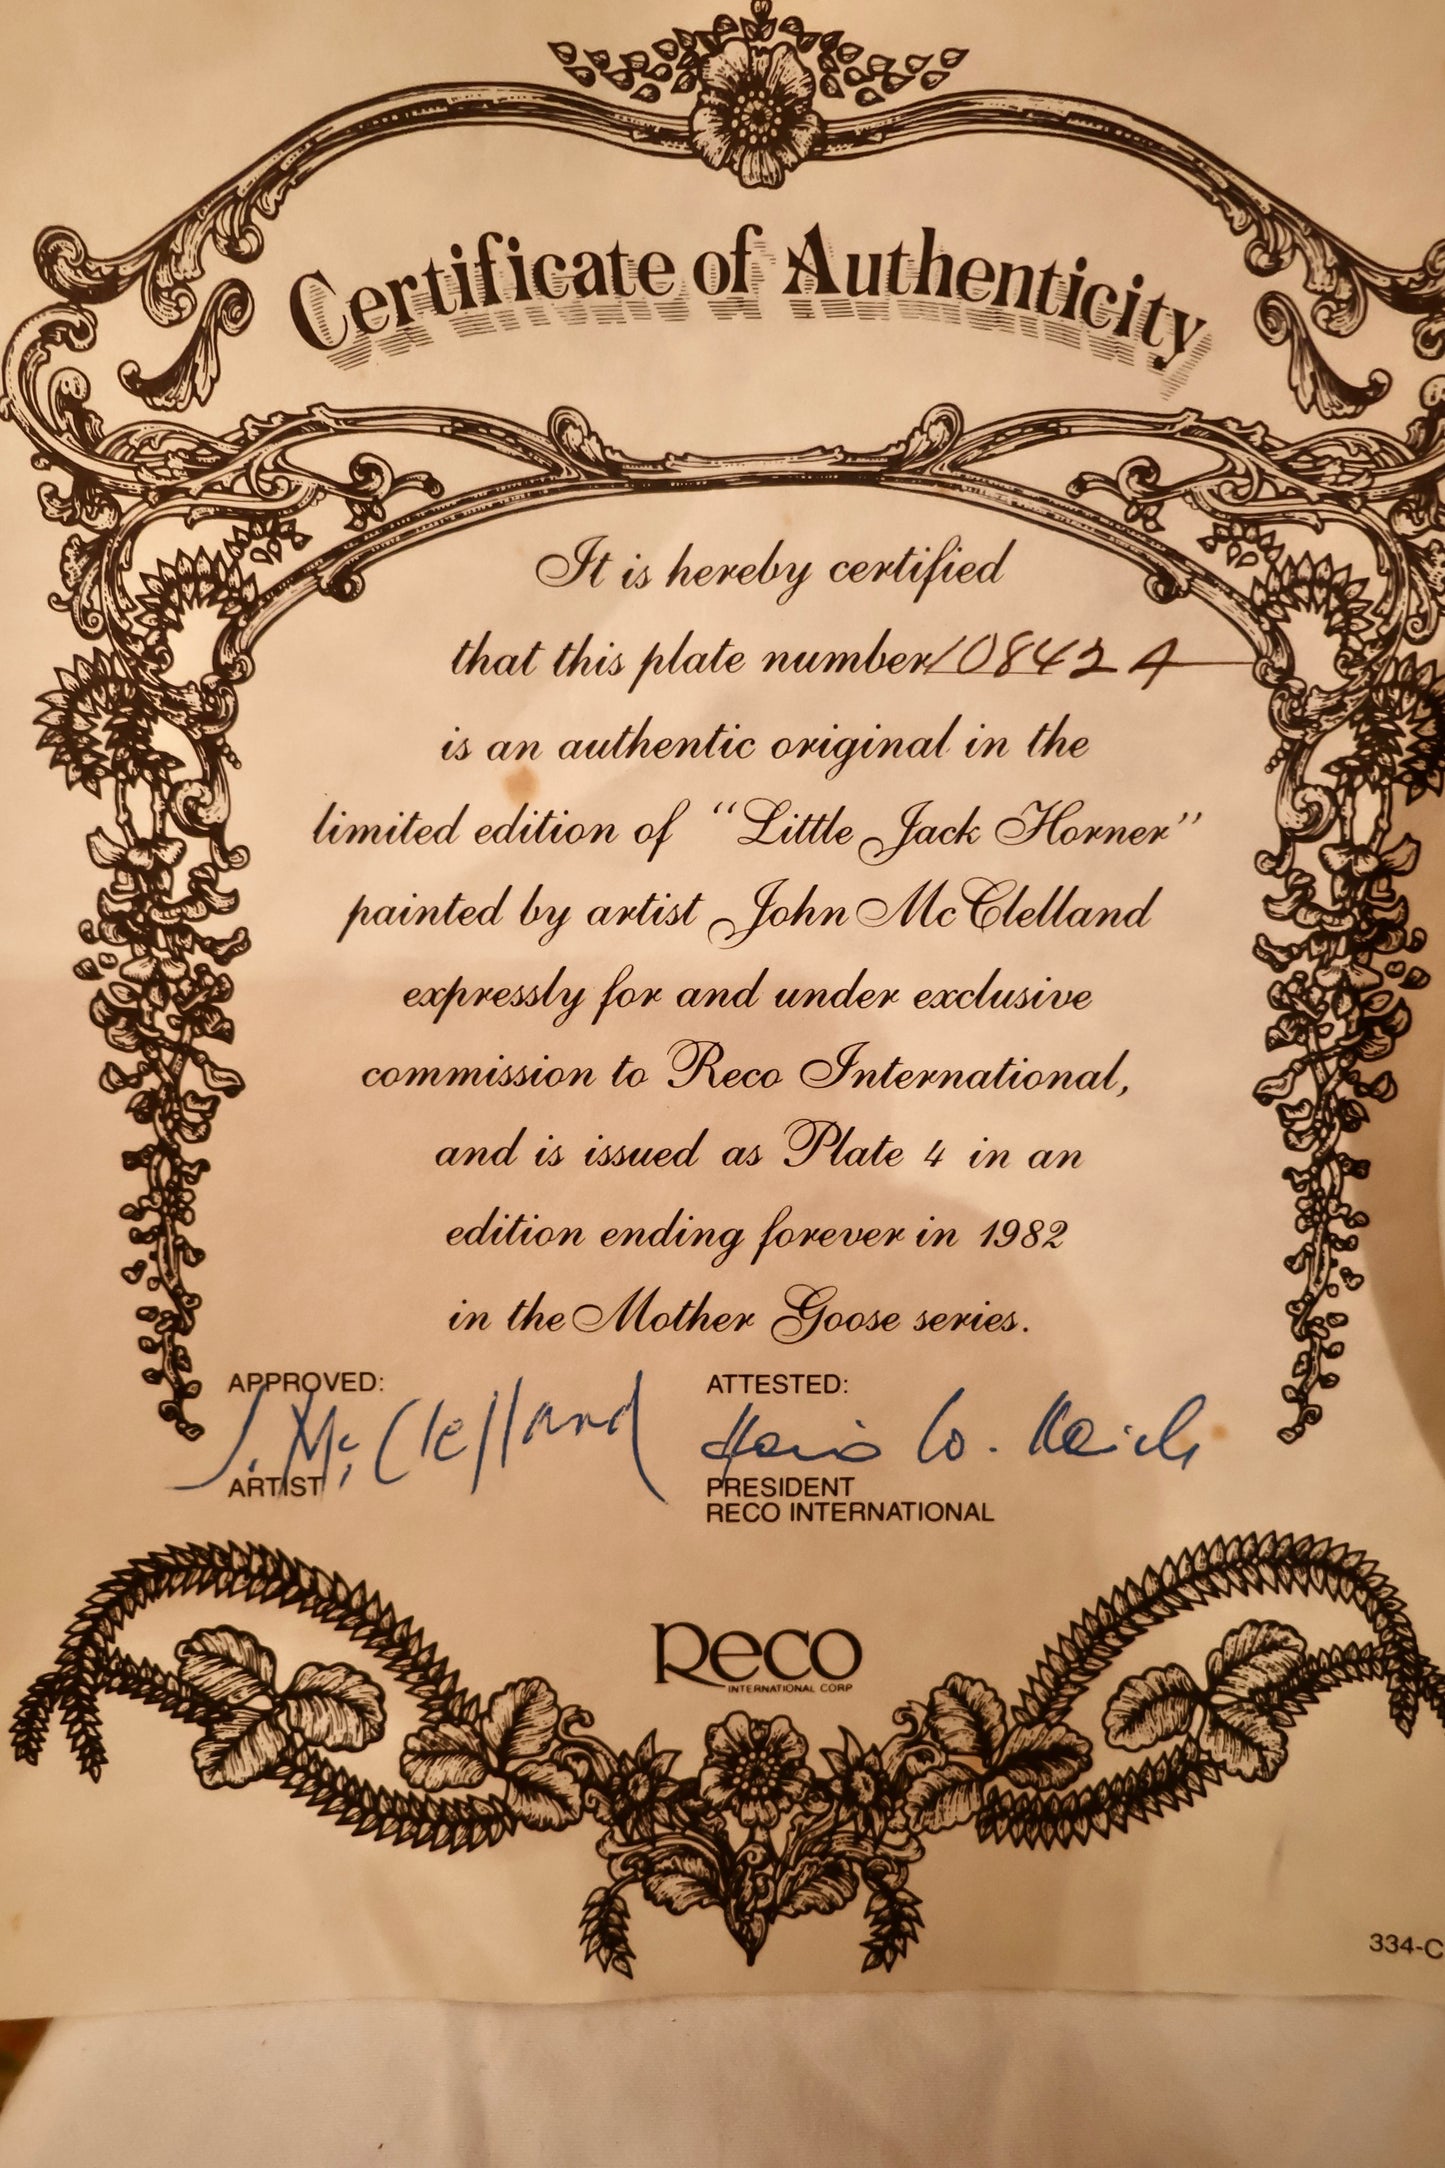 Certificate of Authenticity
It is hereby certified
that this plate number 10842 A
is an authentic original in the
limited edition of “Little Jack Horner”
painted by artist John McClelland
expressly for and under exclusive
commission to Reco International,
and is issued as Plate 4 in an
edition ending forever in 1982
in the Mother Goose series.
APPROVED: ATTESTED:
J. McClelland W.
ARTIST PRESIDENT
RECO INTERNATIONAL
Reco
INTERNATIONAL CORP
334-C